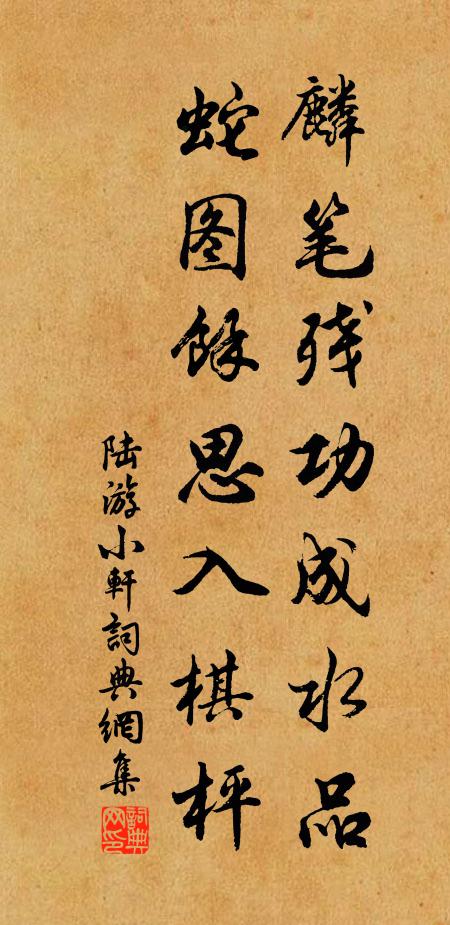 麟笔残功成水品
蛇图馀思入棋枰
陆游小軒詞典網集
詞典网印